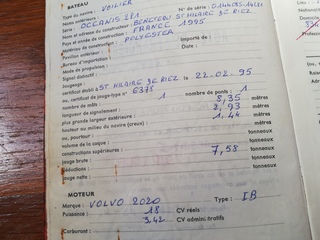 BATEAU
Type du navire : VOILIER
Noms antérieurs :
Série : OCEANIS 281 N° de série :
Nom et adresse du constructeur : BENETEAU ST HILAIRE DE RIEZ
Pays et année de construction : FRANCE 1995
Matériau de construction : POLYESTER
Pavillon antérieur :
Importé de :
Bureau d'immatriculation : Date :
Mode de propulsion :
Signal distinctif :
Jaugeage :
certificat établi à ST HILAIRE DE RIEZ le 22.02.95
ou, certificat de jauge-type n° 6375
nombre de mâts : 1 nombre de ponts : 1
longueur du signalement : 8,35 mètres
plus grande largeur extérieure : 2,93 mètres
hauteur au milieu du navire (creux) : 1,44 mètres
ou, pour
volume de la coque : tonneaux
constructions supérieures : tonneaux
jauge brute : 7,58 tonneaux
déductions : tonneaux
jauge nette : tonneaux
MOTEUR
Marque : VOLVO 2020 Type : IB
Puissance : 18 CV réels
3,42 CV administratifs
Carburant :